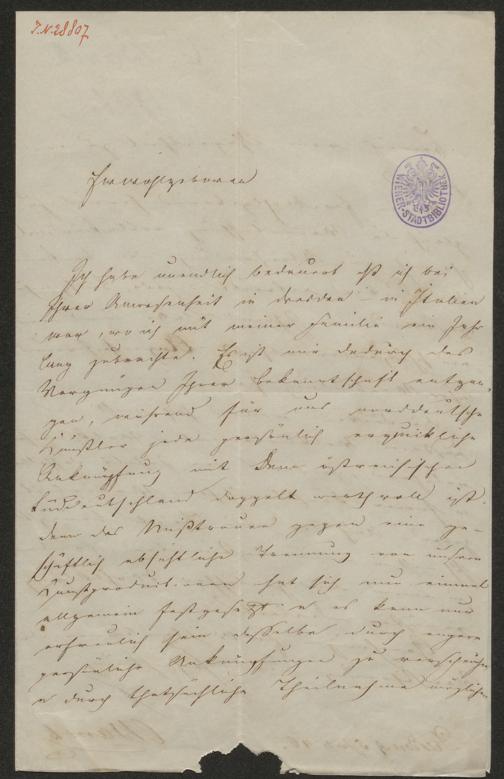 J.N. 28807
WIENER-STADTBIBLIOTHEK
Euer Wohlgeboren
Ich habe unendlich bedauert daß ich bei
Ihrer Anwesenheit in Dresden – in Italien
war, wo ich mit meiner Familie ein Jahr
lang zubrachte. Es ist mir dadurch das
Vergnügen Ihrer Bekanntschaft entgan-
gen, während für uns norddeutsche
Künstler jede persönlich erquickliche
Anknüpfung mit dem östreichischen
Süddeutschland doppelt werthvoll ist.
denn das Mißtrauen gegen eine ge-
schäftlich absichtliche Trennung von unsern
Kunstproductionen hat sich nun einmal
allgemein festgesetzt u es kann nur
erfreulich sein dasselbe durch engere
persönliche Anknüpfungen zu
u durch thatsächliche Theilnahme